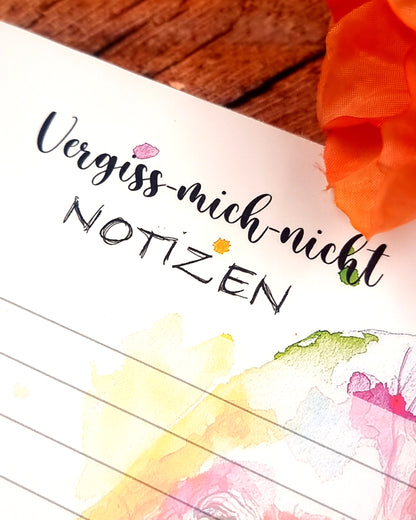 Vergiss-mich-nicht
NOTIZEN